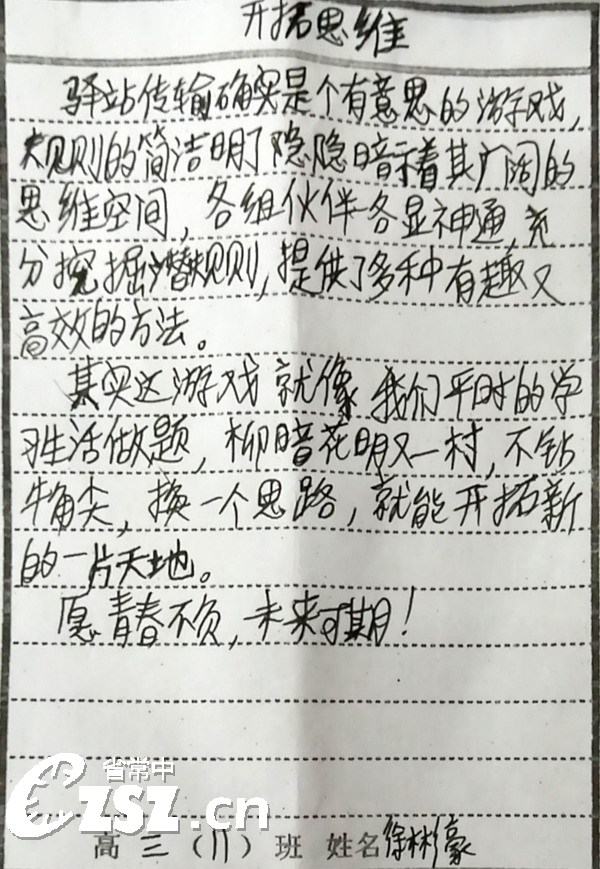 开拓思维
驿站传输确实是个有意思的游戏,
规则的简洁明了隐隐暗示着其广阔的
思维空间,各组伙伴各显神通,充
分挖掘潜规则,提供了多种有趣又
高效的方法。
其实这游戏就像我们平时的学
习生活做题,柳暗花明又一村,不钻
牛角尖,换一个思路,就能开拓新
的一片天地。
愿青春不负,未来可期!
省常中
CZSZ.cn
高三(11)班 姓名徐彬豪